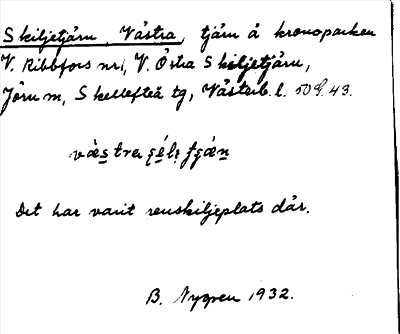 Skiljetjärn, Västra, tjärn å kronoparken
V. Ribbfors nr 1, V. Östra Skiljetjärn,
Jörn m, Skellefteå tg, Västerb. l. 50 G. 43.
Det har varit renskiljeplats där.
B. Nygren 1932.